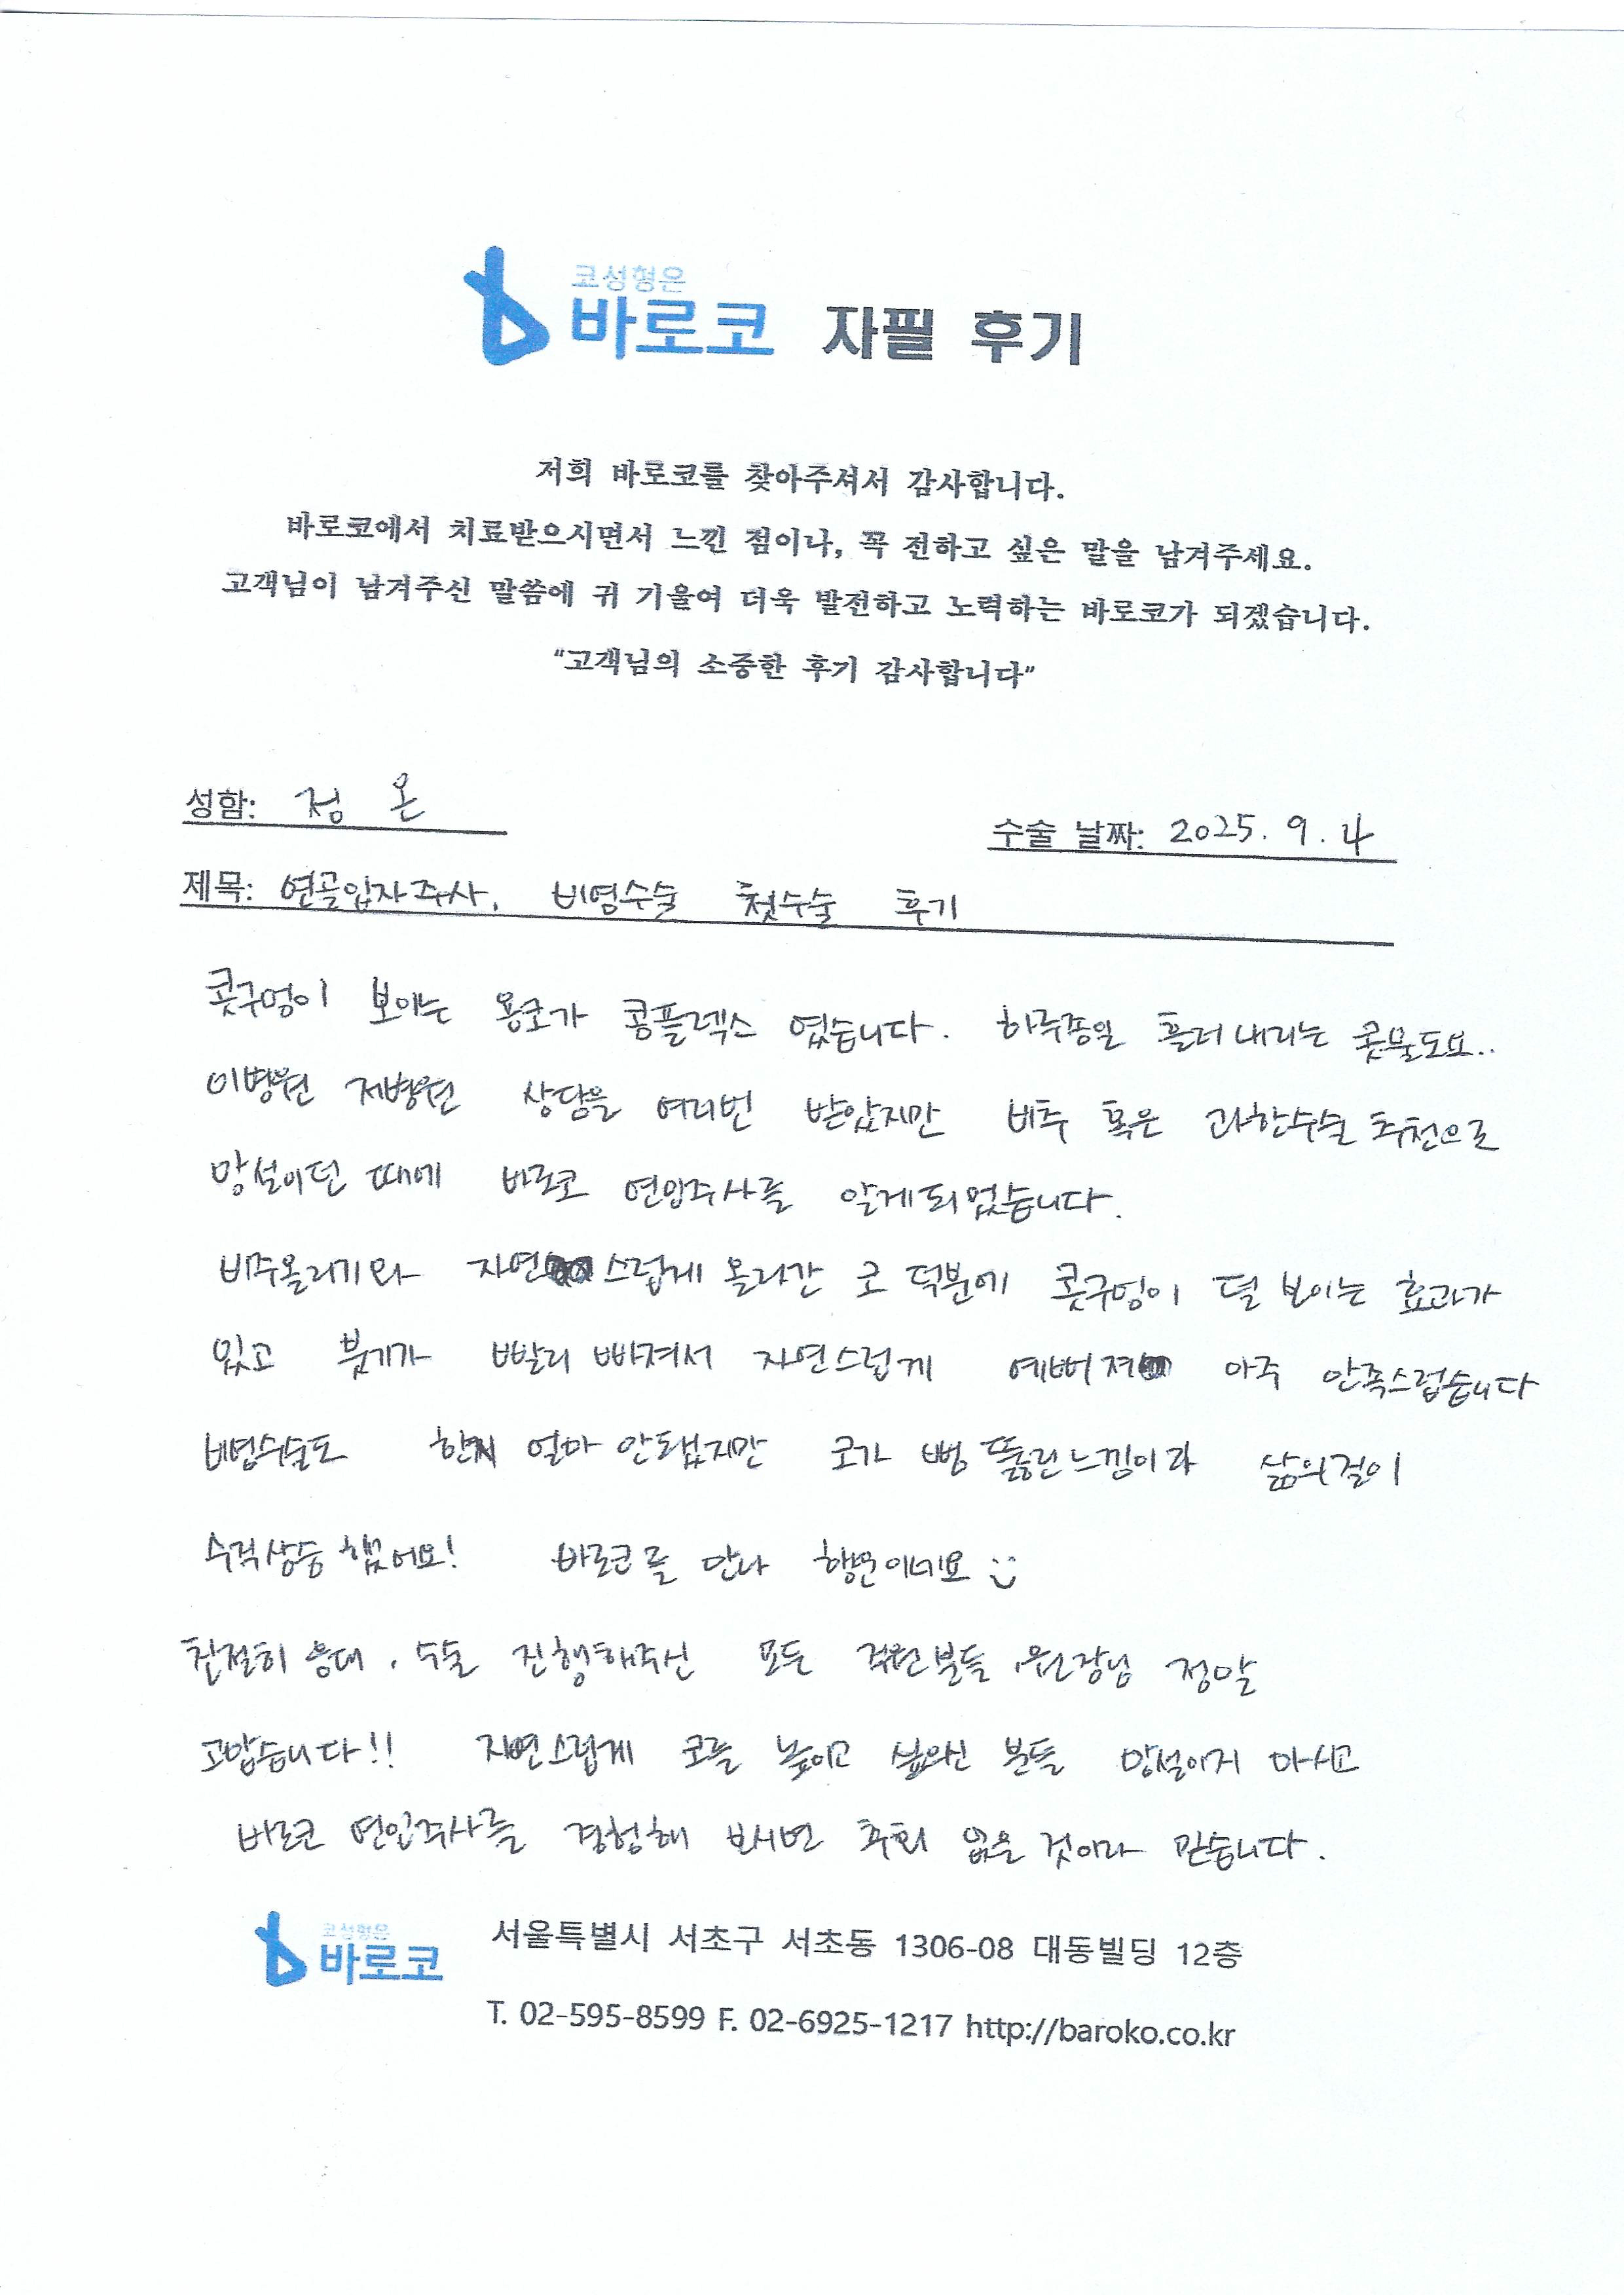 코성형은
바로코 자필 후기
저희 바로코를 찾아주셔서 감사합니다.
바로코에서 치료받으시면서 느낀 점이나, 꼭 전하고 싶은 말을 남겨주세요.
고객님이 남겨주신 말씀에 귀 기울여 더욱 발전하고 노력하는 바로코가 되겠습니다.
“고객님의 소중한 후기 감사합니다”
성함: 정 온
수술 날짜: 2025. 9. 4
제목: 연골입자주사, 비염수술 첫수술 후기
콧구멍이 보이는 용코가 콤플렉스 였습니다. 하루종일 흘러내리는 콧물도요..
이병원 저병원 상담을 여러번 받았지만 비추 혹은 과한수술 추천으로
망설이던 때에 바로코 연입주사를 알게되었습니다.
비주올리기와 자연스럽게 올라간 코 덕분에 콧구멍이 덜 보이는 효과가
있고 붓기가 빨리 빠져서 자연스럽게 예뻐져 아주 만족스럽습니다
비염수술도 한지 얼마 안됐지만 코가 뻥 뚫린느낌이라 삶의질이
수직상승 했어요! 바로코를 만나 행운이네요
친절히 응대, 수술 진행해주신 모든 직원분들, 원장님 정말
고맙습니다!! 자연스럽게 코를 높이고 싶으신 분들 망설이지 마시고
바로코 연입주사를 경험해 보시면 후회 없을 것이라 믿습니다.
코성형은
바로코
서울특별시 서초구 서초동 1306-08 대동빌딩 12층
T. 02-595-8599 F. 02-6925-1217 http://baroko.co.kr